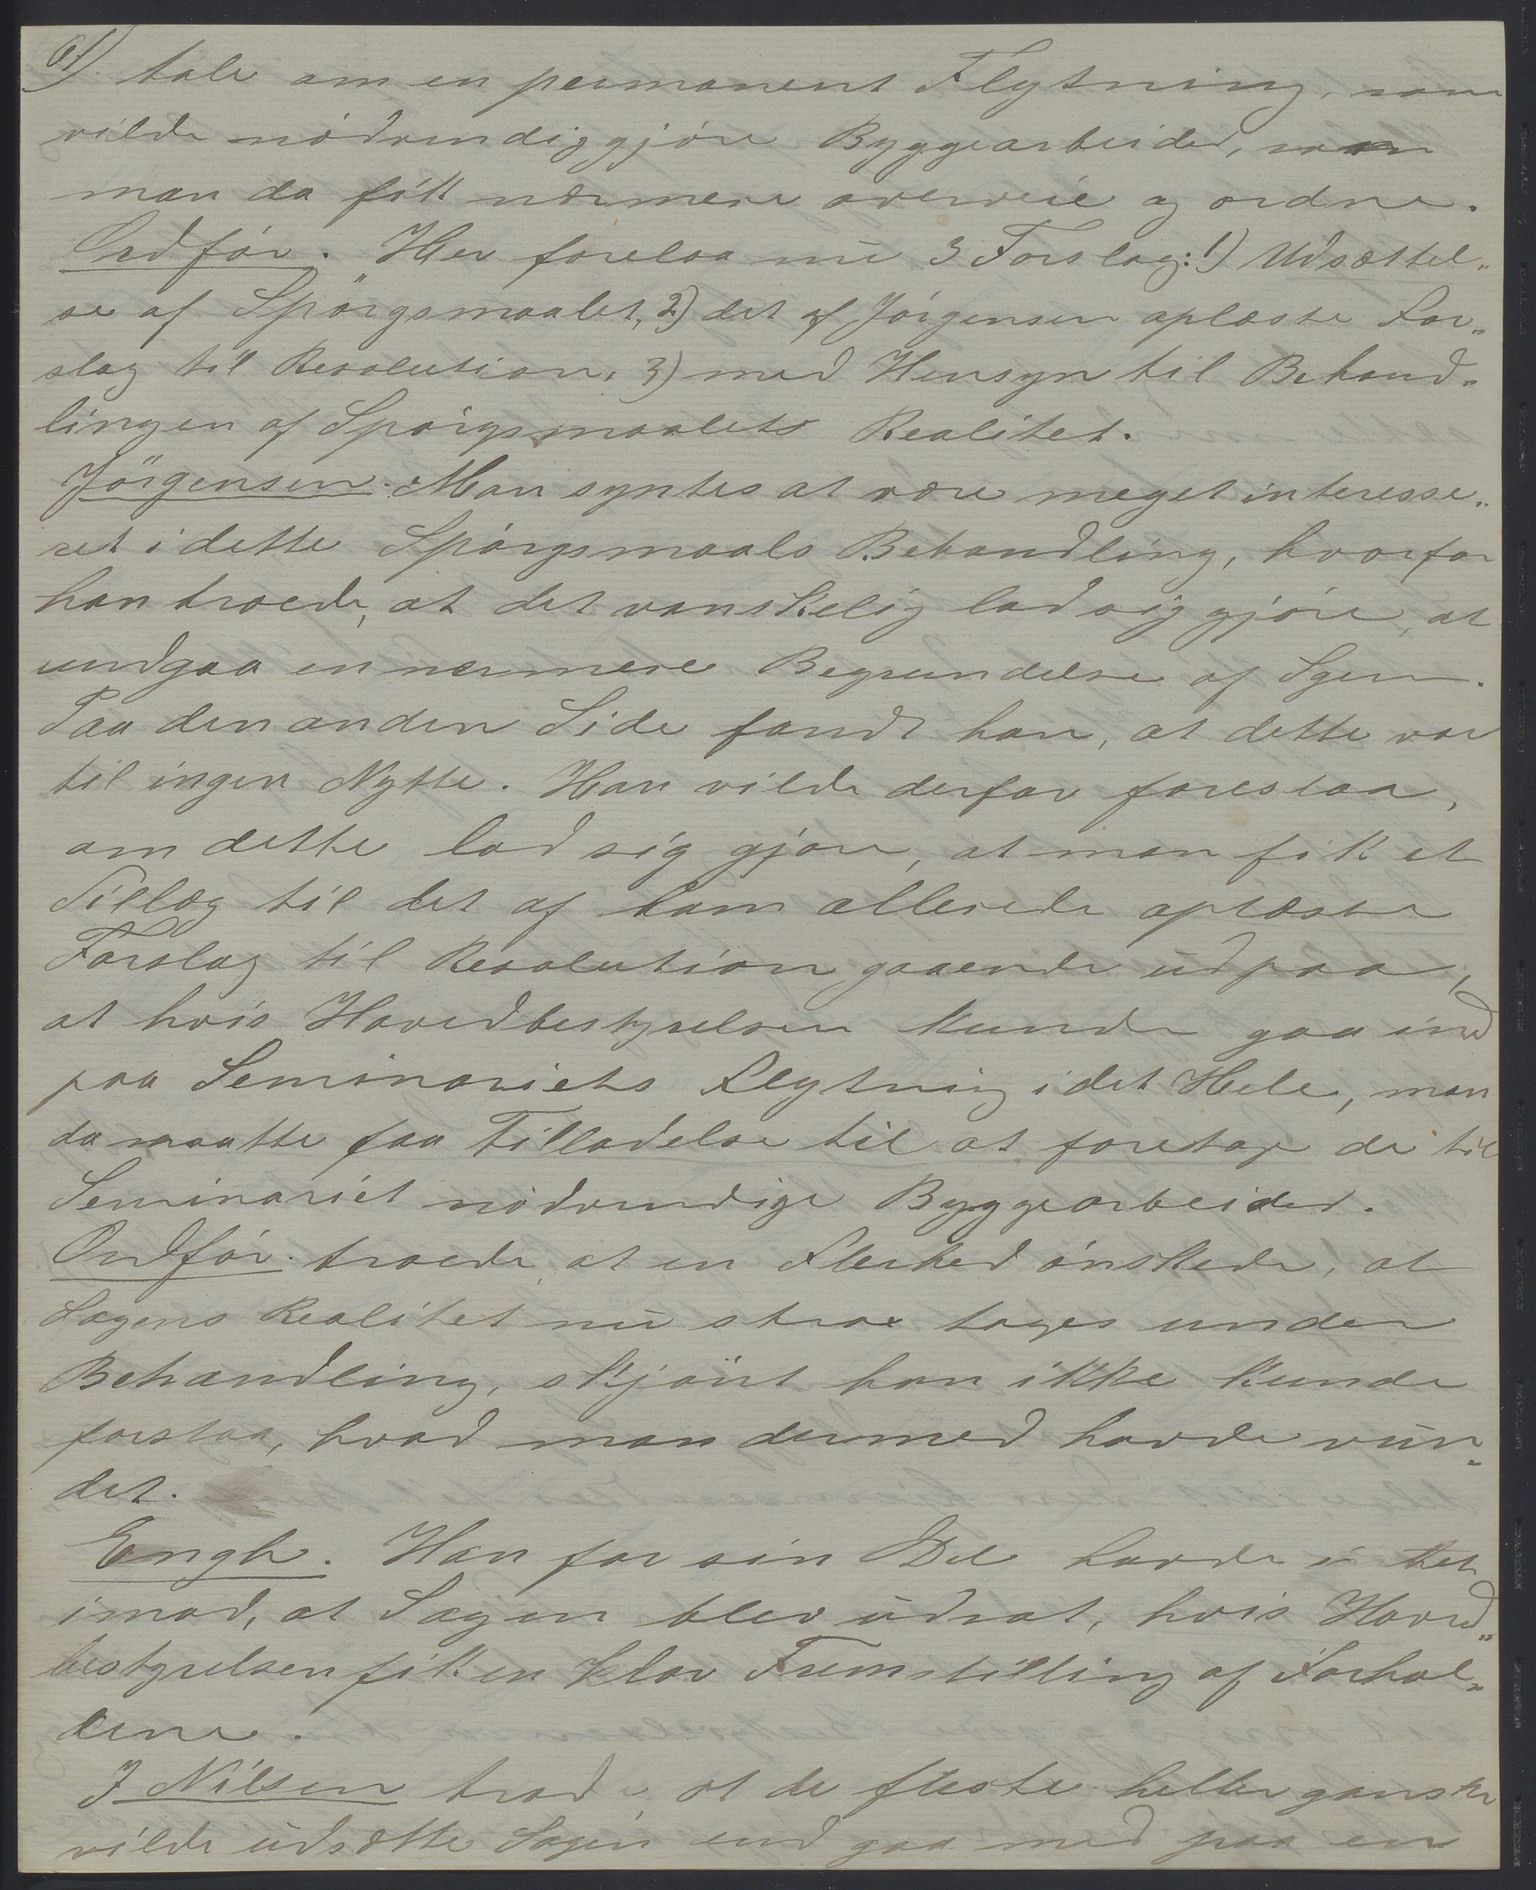 61) tale om en permanent Flytning, som
vilde nødvendiggjøre Byggearbeider, som
man da fik nærmere overveie og ordne.
Ordfør. Her forelaa nu 3 Forslag: 1) Udsættel-
se af Spørgsmaalet, 2) det af Jørgensen oplæste For-
slag til Resolution, 3) med Hensyn til Behand-
lingen af Spørgsmaalets Realitet.
Jørgensen. Man syntes at være meget interesse-
ret i dette Spørgsmaals Behandling, hvorfor
han troede, at det vanskelig lod sig gjøre, at
undgaa en nærmere Begrundelse af Sgen.
Paa den anden Side fandt han, at dette var
til ingen Nytte. Han vilde derfor foreslaa,
om dette lod sig gjøre, at man fik et
Tillæg til det af ham allerede oplæste
Forslag til Resolution gaaende ud paa,
at hvis Hovedbestyrelsen kunde gaa ind
paa Seminariets Flytning i det Hele, man
da maatte faa Tilladelse til at foretage de til
Seminariet nødvendige Byggearbeider.
Ordfør. troede, at en Flerhed ønskede, at
Sagens Realitet nu strax toges under
Behandling, skjønt han ikke kunde
forstaa, hvad man dermed havde vun-
det.
Engh. Han for sin Del havde intet
imod, at Sagen blev udsat, hvis Hoved-
bestyrelsen fik en klar Fremstilling af Forhol-
dene.
J Nilsen trode, at de fleste heller ganske
vilde udsætte Sagen end gaa med paa en